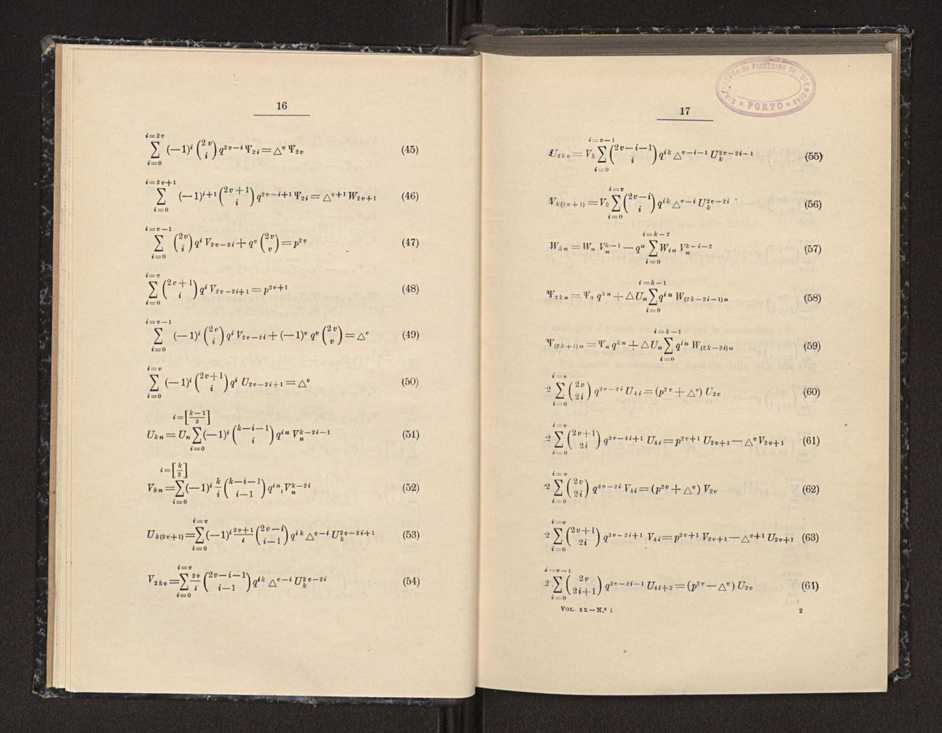 16
$\sum_{i=0}^{i=2v} (-1)^i \binom{2v}{i} q^{2v-i} \Psi_{2i} = \triangle^v \Psi_{2v}$ (45)
$\sum_{i=0}^{i=2v+1} (-1)^{i+1} \binom{2v+1}{i} q^{2v-i+1} \Psi_{2i} = \triangle^{v+1} W_{2v+1}$ (46)
$\sum_{i=0}^{i=v-1} \binom{2v}{i} q^i V_{2v-2i} + q^v \binom{2v}{v} = p^{2v}$ (47)
$\sum_{i=0}^{i=v} \binom{2v+1}{i} q^i V_{2v-2i+1} = p^{2v+1}$ (48)
$\sum_{i=0}^{i=v-1} (-1)^i \binom{2v}{i} q^i V_{2v-2i} + (-1)^v q^v \binom{2v}{v} = \triangle^v$ (49)
$\sum_{i=0}^{i=v} (-1)^i \binom{2v+1}{i} q^i U_{2v-2i+1} = \triangle^v$ (50)
$U_{kn} = U_n \sum_{i=0}^{i=\left[\frac{k-1}{2}\right]} (-1)^i \binom{k-i-1}{i} q^{in} V_n^{k-2i-1}$ (51)
$V_{kn} = \sum_{i=0}^{i=\left[\frac{k}{2}\right]} (-1)^i \frac{k}{i} \binom{k-i-1}{i-1} q^{in} V_n^{k-2i}$ (52)
$U_{k(2v+1)} = \sum_{i=0}^{i=v} (-1)^i \frac{2v+1}{i} \binom{2v-i}{i-1} q^{ik} \triangle^{v-i} U_k^{2v-2i+1}$ (53)
$V_{2kv} = \sum_{i=0}^{i=v} \frac{2v}{i} \binom{2v-i-1}{i-1} q^{ik} \triangle^{v-i} U_k^{2v-2i}$ (54)
17
$U_{2kv} = V_k \sum_{i=0}^{i=v-1} \binom{2v-i-1}{i} q^{ik} \triangle^{v-i-1} U_k^{2v-2i-1}$ (55)
$V_{k(2v+1)} = V_k \sum_{i=0}^{i=v} \binom{2v-i}{i} q^{ik} \triangle^{v-i} U_k^{2v-2i}$ (56)
$W_{kn} = W_n V_n^{k-1} - q^n \sum_{i=0}^{i=k-2} W_{in} V_n^{k-i-2}$ (57)
$\Psi_{2kn} = \Psi_0 q^{kn} + \triangle U_n \sum_{i=0}^{i=k-1} q^{in} W_{(2k-2i-1)n}$ (58)
$\Psi_{(2k+1)n} = \Psi_n q^{kn} + \triangle U_n \sum_{i=0}^{i=k-1} q^{in} W_{(2k-2i)n}$ (59)
$2 \sum_{i=0}^{i=v} \binom{2v}{2i} q^{2v-2i} U_{4i} = (p^{2v} + \triangle^v) U_{2v}$ (60)
$2 \sum_{i=0}^{i=v} \binom{2v+1}{2i} q^{2v-2i+1} U_{4i} = p^{2v+1} U_{2v+1} - \triangle^v V_{2v+1}$ (61)
$2 \sum_{i=0}^{i=v} \binom{2v}{2i} q^{2v-2i} V_{4i} = (p^{2v} + \triangle^v) V_{2v}$ (62)
$2 \sum_{i=0}^{i=v} \binom{2v+1}{2i} q^{2v-2i+1} V_{4i} = p^{2v+1} V_{2v+1} - \triangle^{v+1} U_{2v+1}$ (63)
$2 \sum_{i=0}^{i=v-1} \binom{2v}{2i+1} q^{2v-2i-1} U_{4i+2} = (p^{2v} - \triangle^v) U_{2v}$ (64)
VOL. XX—N.º 1 2
PORTO